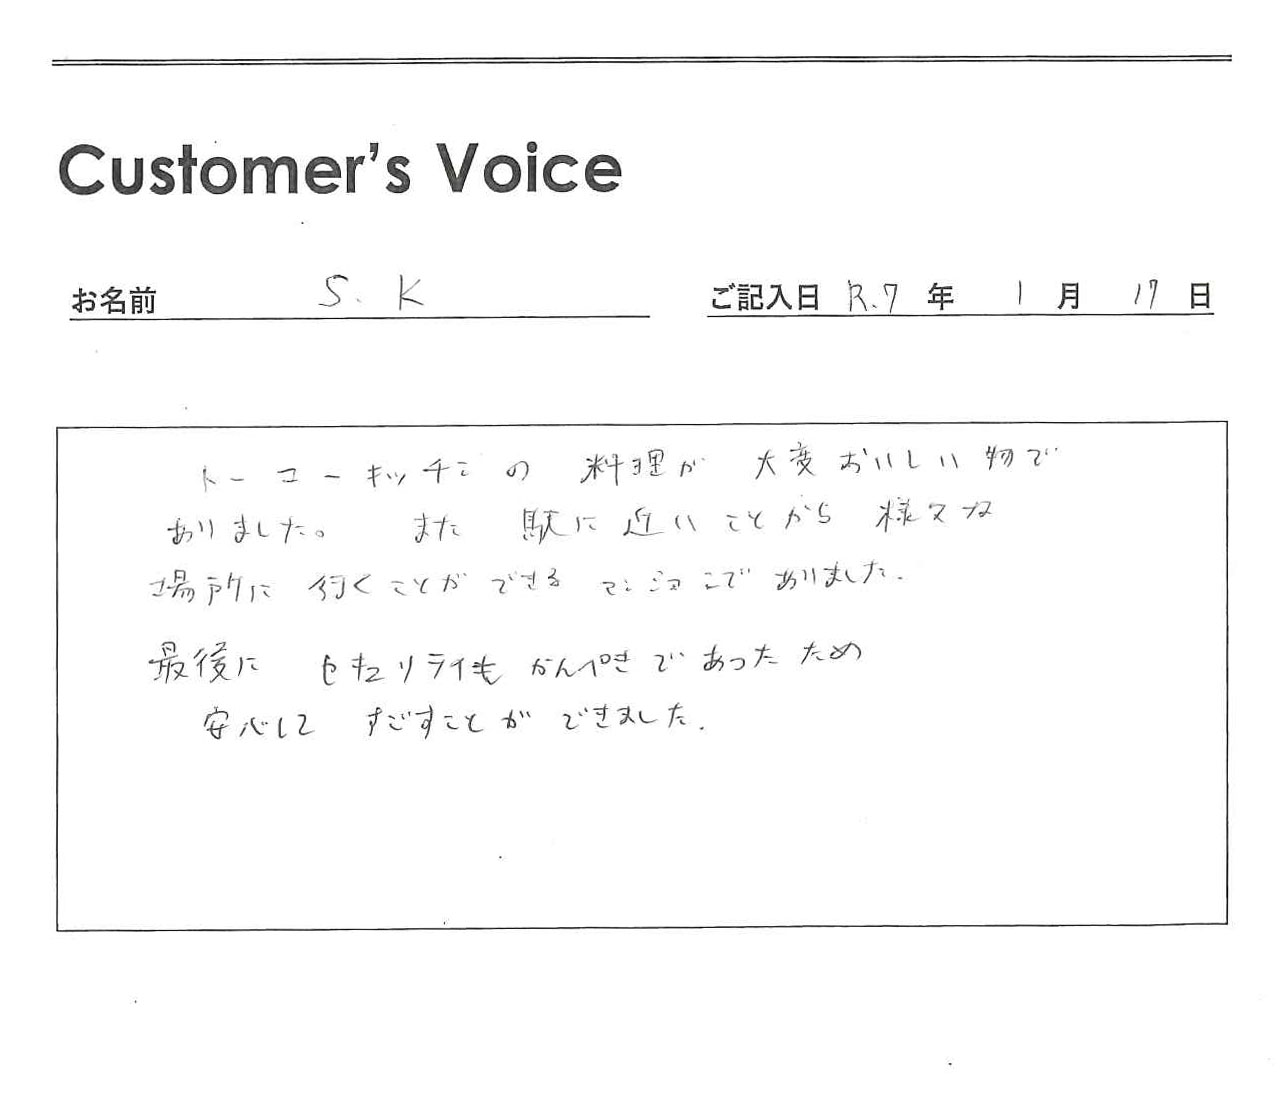 Customer's Voice
お名前 S.K ご記入日 R.7年 1月 17日
トーコーキッチンの 料理が 大変おいしい物で
ありました。 また 駅に近いことから 様々な
場所に 行くことができる マンションでありました.
最後に セキュリティも かんぺきであったため
安心して すごすことが できました.